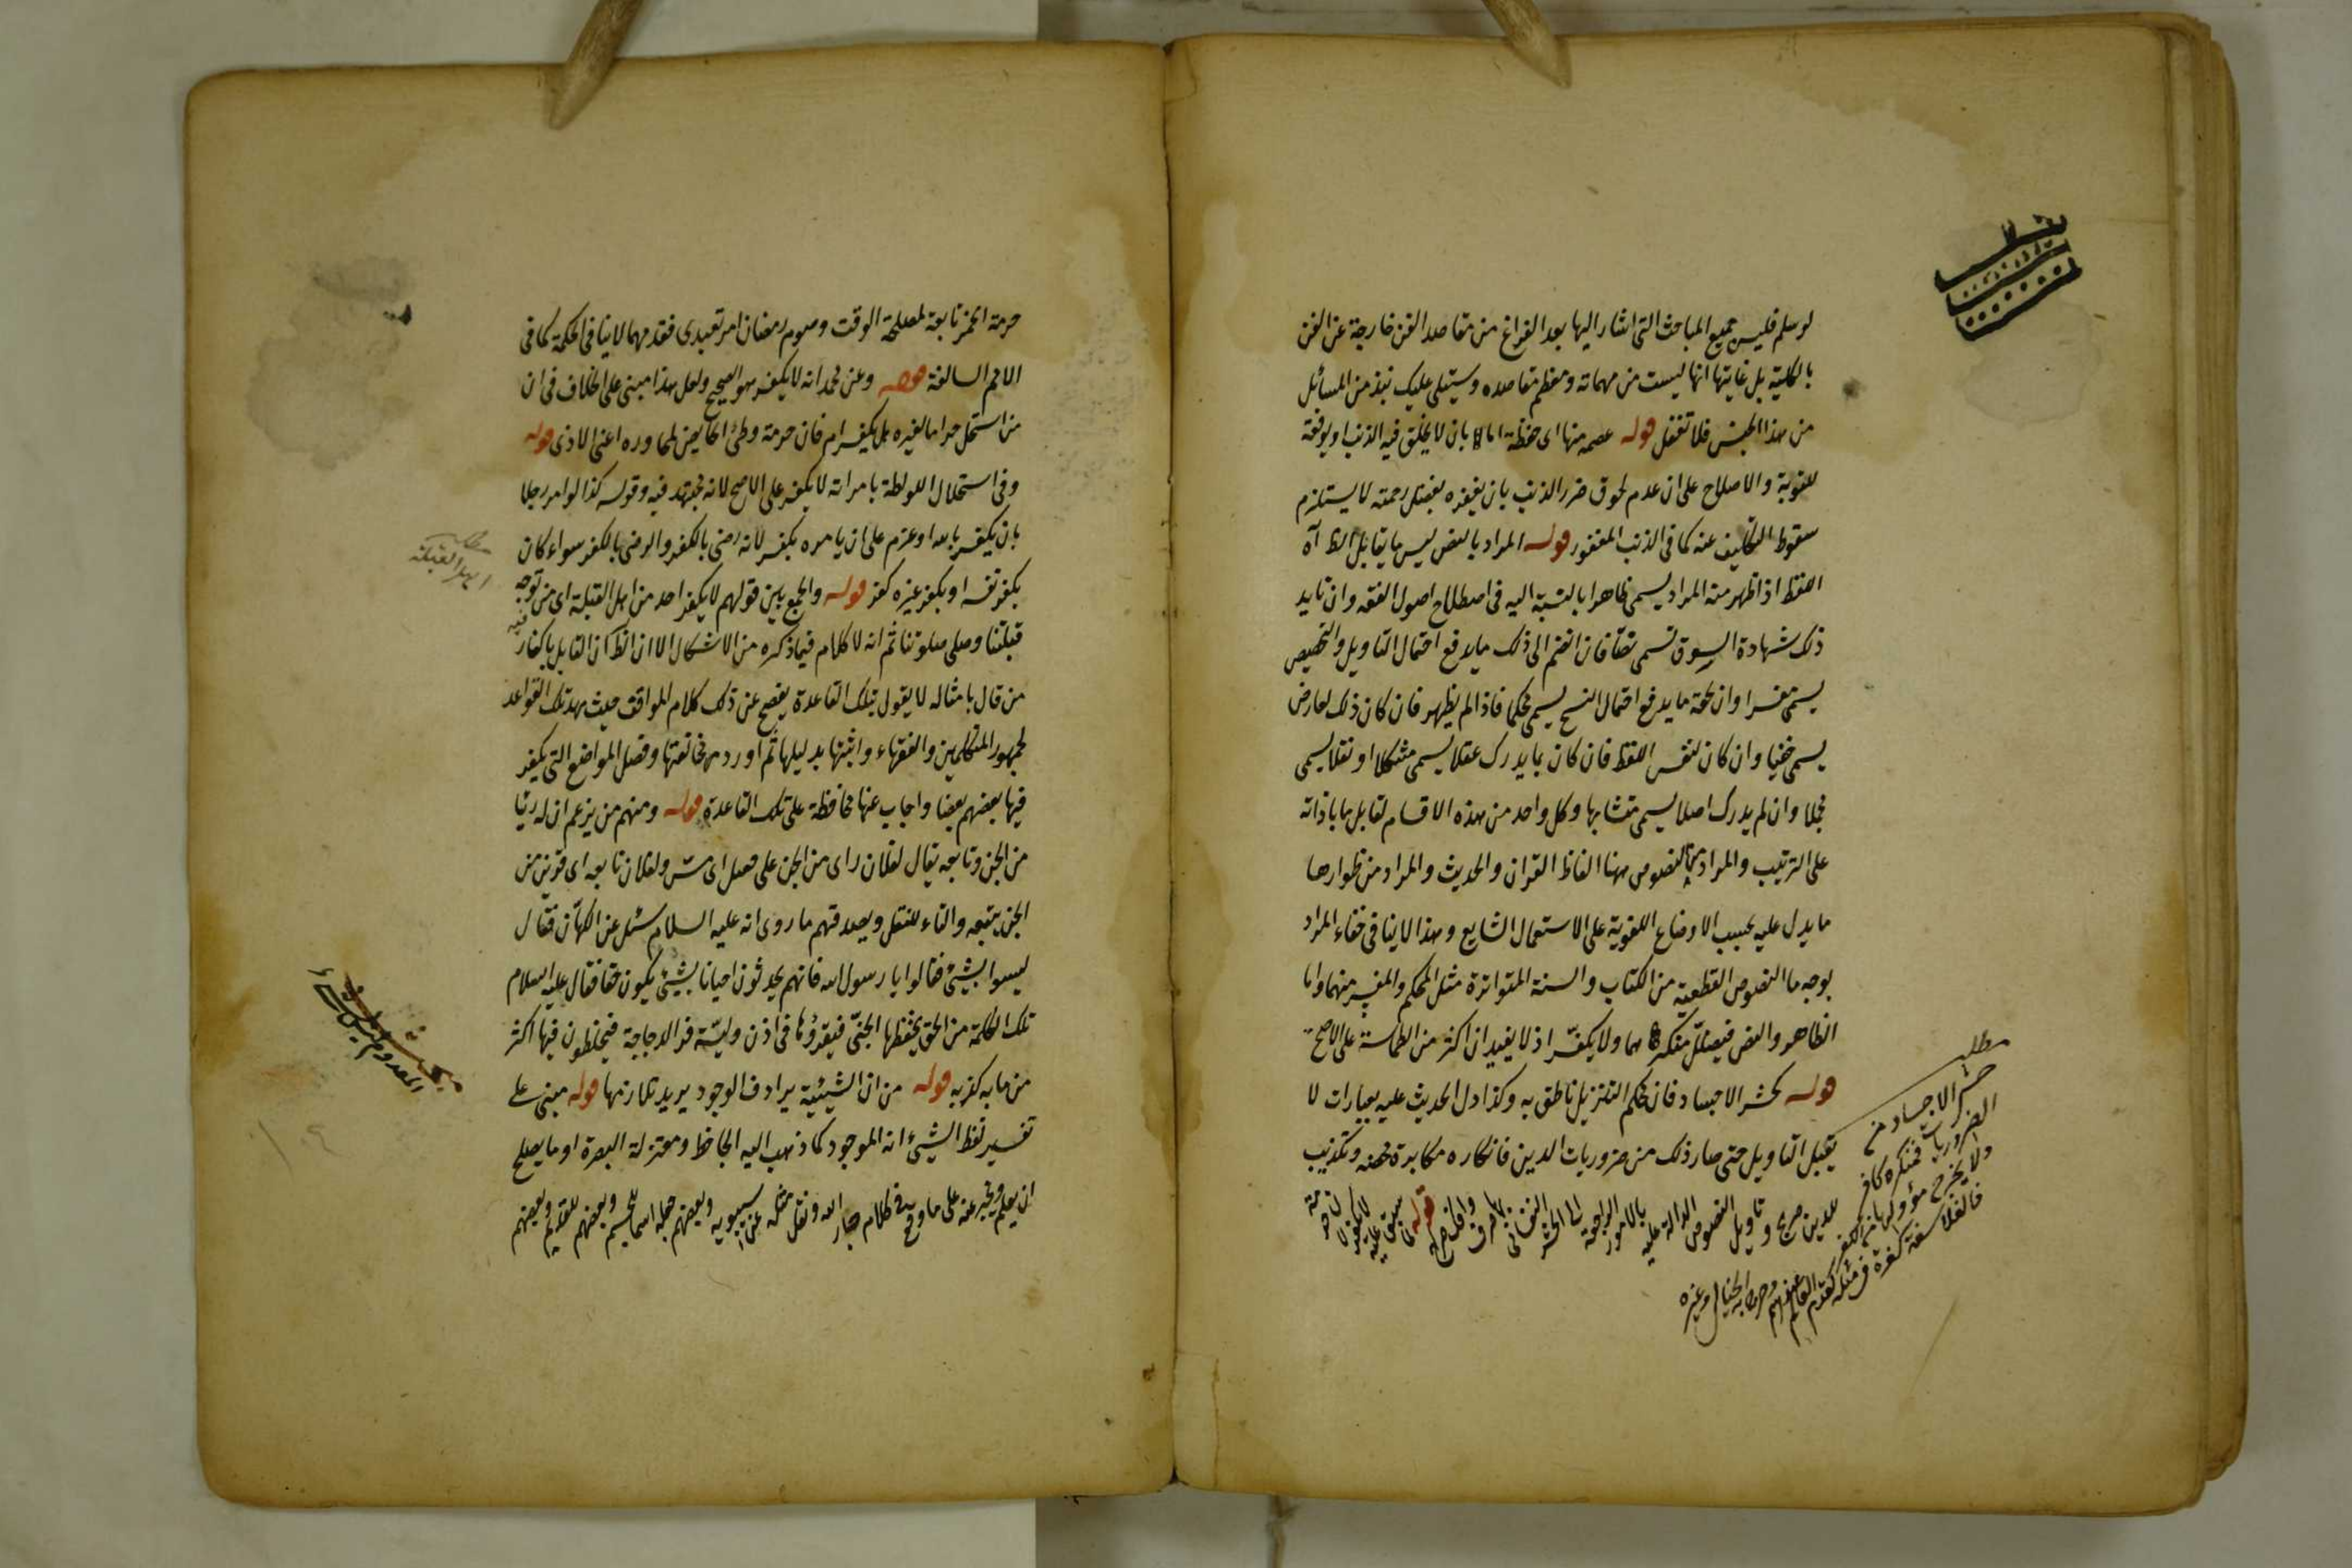 لو سلم فليس جميع المباحث التى اشار اليها بعد الفراغ من مقاصد الفن خارجة عن الفن
بالكلية بل غايتها انها ليست من مهماته ومعظم مقاصده وسيتلى عليك نبذ من المسائل
من هذا الجنس فلا تغفل قوله عصمه منها اى حفظه اما بان لا يخلق فيه الذنب او يوفقه
للتوبة والاصلاح على ان عدم لحوق ضرر الذنب بان يغفره بفضل رحمته لا يستلزم
سقوط التكليف عنه كما فى الذنب المغفور قوله المراد بالنص ليس ما يقابل الظ آه
اللفظ اذا ظهر منه المراد يسمى ظاهرا بالنسبة اليه فى اصطلاح اصول الفقه وان تايد
ذلك شهادة السوق تسمى نصا فان انضم الى ذلك ما يدفع احتمال التاويل والتخصيص
يسمى مفسرا وان لحقه ما يدفع احتمال النسخ يسمى محكما فاذا لم يظهر فان كان ذلك لعارض
يسمى خفيا وان كان لنفس اللفظ فان كان بما يدرك عقلا يسمى مشكلا او نقلا يسمى
مجملا وان لم يدرك اصلا يسمى متشابها وكل واحد من هذه الاقسام لقابل ما باذائه
على الترتيب والمراد بالنصوص ههنا الفاظ القران والحديث والمراد من ظواهرها
ما يدل عليه بحسب الاوضاع اللغوية على الاستعمال الشايع وهذا لا ينافى خفاء المراد
بوجه ما النصوص القطعية من الكتاب والسنة المتواترة مثل المحكم والمفسر منهما واما
الظاهر والنص فيضلل منكرهما ولا يكفر اذ لا يفيدان اكثر من الطمانينة على الاصح
قوله كحشر الاجساد فان محكم التنزيل ناطق به وكذا دل الحديث عليه بعبارات لا
يقبل التاويل حتى صار ذلك من ضروريات الدين فانكاره مكابرة محضه وتكذيب
للدين صريح وتاويل النصوص الدالة عليه بالامور الراجعة الى الحشر النفسانى
قوله
مطلب
حشر الاجساد من
الضروريات فمنكره كافر
ولا يخرج مؤولها من الكفر
فالفلاسفة كفرة فى مسئلة قدم العالم
وصرح به الخيالى وغيره
حرمة الخمر تابعة لمصلحة الوقت وصوم رمضان امر تعبدى فقدمهما لا ينافى الحكمة كما فى
الامم السالفة قوله وعن محمد انه لا يكفر هو الصحيح ولعل هذا مبنى على الخلاف فى ان
من استحل حراما لغيره هل يكفر ام فان حرمة وطئ الحايض لمجاوره اعنى الاذى قوله
وفى استحلال اللواطة بامراته لا يكفر على الاصح لانه مجتهد فيه وقوله كذا لو امر رجلا
بان يكفر بالله او عزم على ان يامره بكفر لانه رضى بالكفر والرضى بالكفر سواء كان
بكفر نفسه او بكفر غيره كفر قوله والجمع بين قولهم لا يكفر احد من اهل القبلة اى من توجه
قبلتنا وصلى صلوتنا ثم انه لا كلام فيما ذكره من الاشكال الا ان الظ كان القايل باكفار
من قال بامثاله لا يقول بتلك القاعدة يفصح عن ذلك كلام المواقف حيث مهد تلك القواعد
لجمهور المتكلمين والفقهاء واثبتها بدليلها ثم اورد مخالفتها وفصل المواضع التى يكفر
فيها بعضهم بعضا واجاب عنها محافظة على تلك القاعدة قوله ومنهم من يزعم ان له رئيا
من الجن وتابعه يقال لفلان راى من الجن على فعل اى مس ولفلان تابعه اى قرين من
الجن يتبعه والتاء للنقل ويصدقهم ما روى انه عليه السلام سئل عن الكهان فقال
ليسوا بشيئ فقالوا يا رسول الله فانهم يحدثون احيانا بشيئ يكون حقا فقال عليه السلام
تلك الكلمة من الحق يخفظها الجنى فيقرؤها فى اذن وليه قر الدجاجة فيخلطون فيها اكثر
من مابه كذبه قوله من ان الشيئية يرادف الوجود يريد تلازمها قوله مبنى على
تفسير لفظ الشيئ انه الموجود كما ذهب اليه الجاحظ ومعتزلة البصرة او ما يصلح
ان يعلم ويخبر عنه على ما وقع فى كلام جار الله ونقل مثله عن سيبويه وبعضهم جعله اسما للجسم وبعضهم للقديم وبعضهم
مطلب
اهل القبلة
المعدوم ليس بشئ